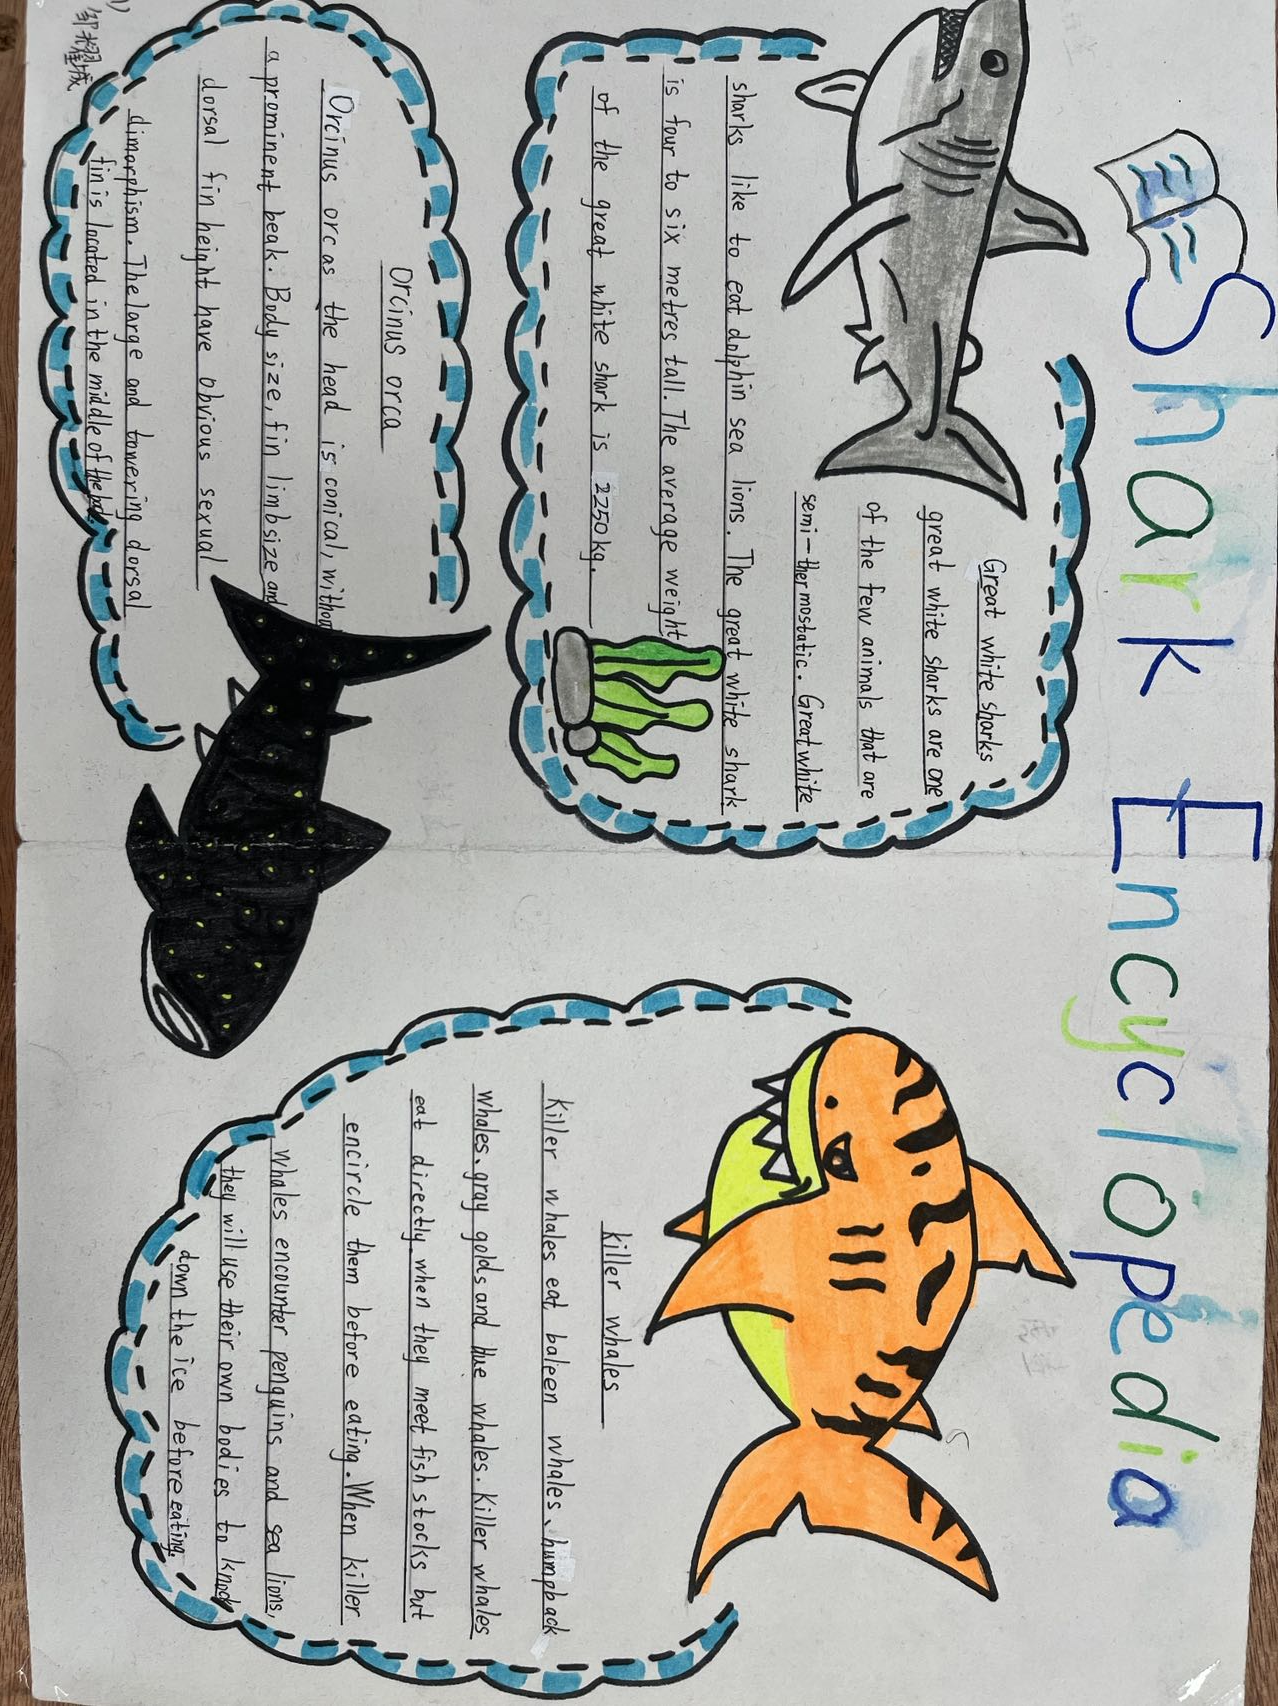 Shark Encyclopedia
Great white sharks
great white sharks are one
of the few animals that are
semi-thermostatic. Great white
sharks like to eat dolphin sea lions. The great white shark
is four to six metres tall. The average weight
of the great white shark is 2250kg.
Orcinus orca
Orcinus orcas the head is conical, without
a prominent beak. Body size, fin limb size and
dorsal fin height have obvious sexual
dimorphism. The large and towering dorsal
fin is located in the middle of the
killer whales
Killer whales eat baleen whales、humpback
whales. gray golds and blue whales. Killer whales
eat directly when they meet fish stocks but
encircle them before eating. When killer
whales encounter penguins and sea lions,
they will use their own bodies to knock
down the ice before eating.
邹耀城